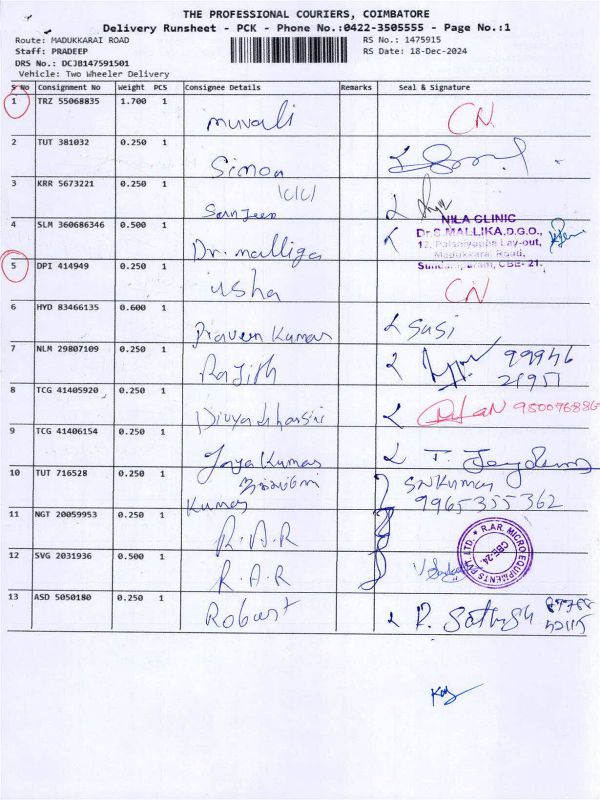 THE PROFESSIONAL COURIERS, COIMBATORE
Delivery Runsheet - PCK - Phone No.:0422-3505555 - Page No.:1
Route: MADUKKARAI ROAD
RS No.: 1475915
Staff: PRADEEP
RS Date: 18-Dec-2024
DRS No.: DCJB147591501
Vehicle: Two Wheeler Delivery
S No Consignment No Weight PCS Consignee Details Remarks Seal & Signature
1 TRZ 55068835 1.700 1 muvali CN
2 TUT 381032 0.250 1 Simon
3 KRR 5673221 0.250 1 Sanjeev
4 SLM 360686346 0.500 1 Dr. malliga
NILA CLINIC
Dr.S.MALLIKA,D.G.O.,
12, Palaniyappa Lay-out,
Madukkarai Road,
Sundarapuram, CBE- 21.
5 DPI 414949 0.250 1 usha CN
6 HYD 83466135 0.600 1 Praveen Kumar Sasi
7 NLM 29807109 0.250 1 Rajith 99946
21951
8 TCG 41405920 0.250 1 Divyadharsini 950076886
9 TCG 41406154 0.250 1 Jaya Kumar
10 TUT 716528 0.250 1 Kumar SNKumar
9965355362
11 NGT 20059953 0.250 1 R.A.R
R.A.R. MICRO EQUIPMENTS PVT. LTD.
CBE-24
12 SVG 2031936 0.500 1 R.A.R
13 ASD 5050180 0.250 1 Robert R. Sathish